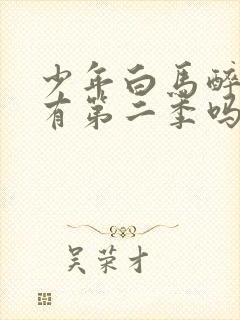 少年白馬醉
有第二季吗
吴荣才